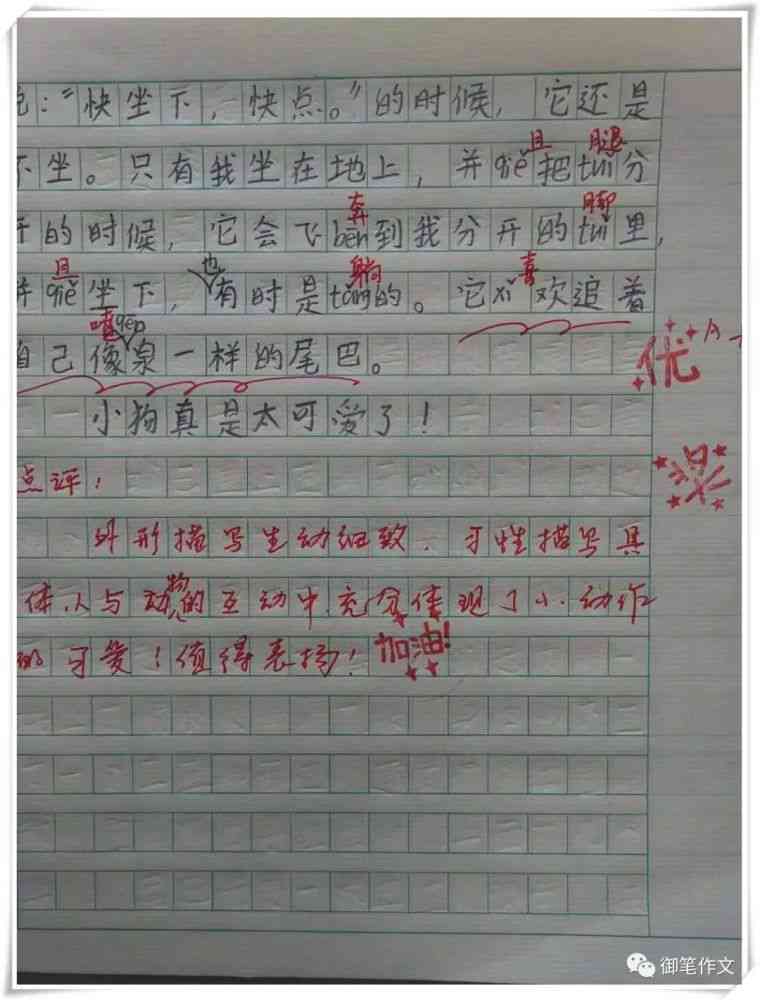 :“快坐下,快点。”的时候,它还是
且 腿
不坐。只有我坐在地上,并qiě把tuǐ分
奔 脚
开的时候,它会飞bēn到我分开的tuǐ里,
且 躺 喜
并qiě坐下,也有时是tǎng的。它xǐ欢追着
喷
自己像泉一样的尾巴。
优 A
小狗真是太可爱了!
点评!
外形描写生动细致,习性描写具
体,人与动物的互动中,充分体现了小动作
的可爱!值得表扬! 加油!
御笔作文